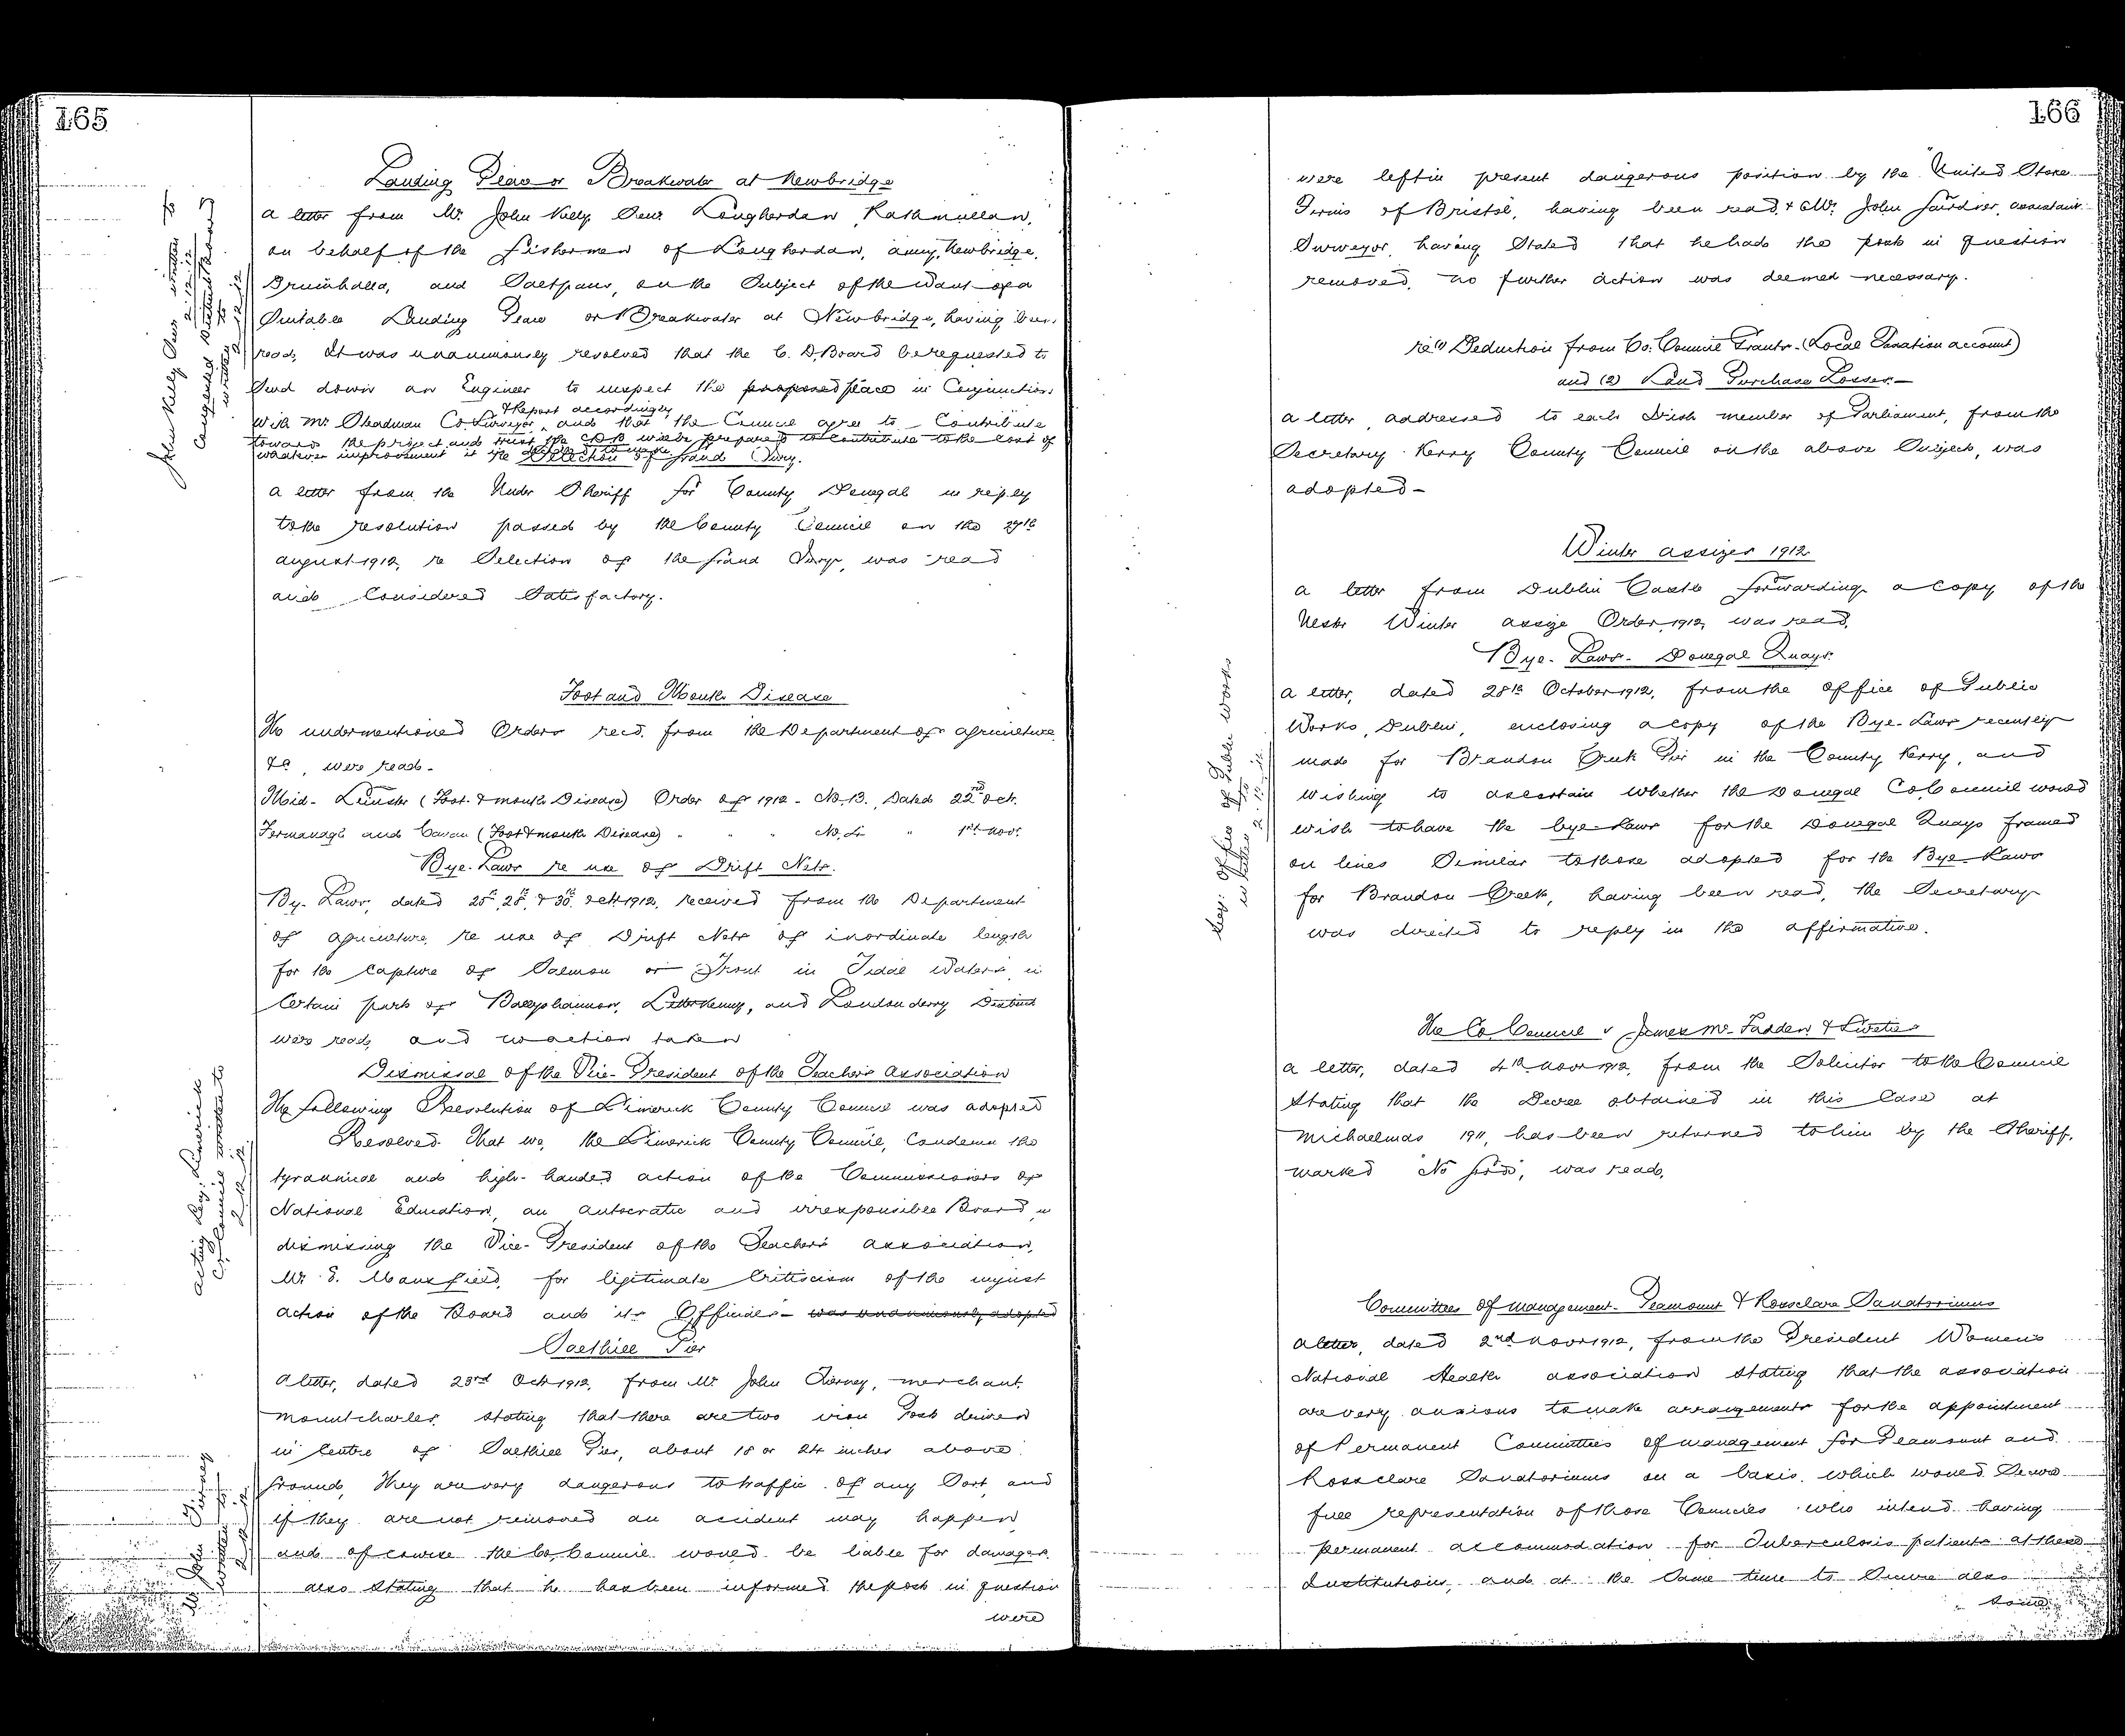 165
Landing Place or Breakwater at Newbridge
A letter from Mr John Kelly Senr Lougherdan, Rathmullan,
on behalf of the fishermen of Lougherdan, Newbridge,
Drumhalla, and Saltpans, on the Subject of the Want of a
Suitable Landing Place or Breakwater at Newbridge, having been
read, it was unanimously resolved that the C. D. Board be requested to
Send down an Engineer to inspect the proposed place in Conjunction
with Mr Steadman Co Surveyor, & Report accordingly and that the Council agree to Contribute
towards the project and trust the CDB will be prepared to contribute to the cost of
whatever improvement it
re Selection of Grand Jury.
A letter from the Under Sheriff for County Donegal in reply
to the resolution passed by the County Council on the 27th
August 1912, re Selection of the Grand Jury, was read
and Considered Satisfactory.
Foot and Mouth Disease
The undermentioned Orders recd. from the Department of Agriculture
&c, were read.
Mid-Leinster (Foot & Mouth Disease) Order of 1912 - No. 13. Dated 22nd Oct.
Fermanagh and Cavan (Foot & Mouth Disease) " " " No. 4 " 1st Novr.
Bye-Laws re use of Drift Nets.
By-Laws, dated 25th, 28th, & 30th Oct 1912, received from the Department
of Agriculture, re use of Drift Nets of inordinate length
for the Capture of Salmon or Trout in Tidal Waters in
Certain parts of Ballyshannon, Letterkenny, and Londonderry Districts
were read, and no action taken
Dismissal of the Vice-President of the Teachers Association
The following Resolution of Limerick County Council was adopted
Resolved. That we, the Limerick County Council, Condemn the
tyrannical and high-handed action of the Commissioners of
National Education, an autocratic and irresponsible Board in
dismissing the Vice-President of the Teachers Association,
Mr. E. Mansfield, for legitimate Criticism of the unjust
Action of the Board and its Officials - was unanimously adopted
Salthill Pier
A letter, dated 23rd Oct 1912, from Mr John Tierney, merchant,
Mountcharles, stating that there are two iron Posts driven
in Centre of Salthill Pier, about 18 or 24 inches above
ground, They are very dangerous to traffic of any Sort, and
if they are not removed an accident may happen
and of course the Co. Council would be liable for damages
also Stating that he has been informed the posts in question
were
John Kelly Senr written to
2.12.12
Congested Districts Board
written to 2.12.12
Acting Secy: Limerick
Co. Council written to
2.12.12
Mr John Tierney
written to
2.12.12
166
were left in present dangerous position by the United Stone
Firms of Bristol, having been read, & Mr. John Gardner, assistant
Surveyor, having Stated that he had the posts in question
removed, no further action was deemed necessary.
re (1) Deduction from Co: Council Grants - (Local Taxation account)
and (2) Land Purchase Losses. -
A letter addressed to each Irish member of Parliament, from the
Secretary Kerry County Council on the above Subject, was
adopted -
Winter Assizes 1912
A letter from Dublin Castle forwarding a Copy of the
Ulster Winter Assize Order, 1912, was read.
Bye-Laws - Donegal Quays.
A letter, dated 28th October 1912, from the Office of Public
Works, Dublin, enclosing a copy of the Bye-Laws recently
made for Brandon Creek Pier in the County Kerry, and
wishing to ascertain whether the Donegal Co Council would
wish to have the bye-Laws for the Donegal Quays framed
on lines Similar to those adopted for the Bye-Laws
for Brandon Creek, having been read, the Secretary
was directed to reply in the affirmative.
The Co. Council v James McFadden & Sureties
A letter, dated 4th Novr 1912, from the Solicitor to the Council
Stating that the Decree obtained in this Case at
Michaelmas 1911, has been returned to him by the Sheriff,
marked "No Goods", was read.
Committees of Management - Peamount & Rossclare Sanatoriums
A letter, dated 2nd Novr 1912, from the President Women's
National Health Association stating that the association
are very anxious to make arrangements for the appointment
of Permanent Committees of Management for Peamount and
Rossclare Sanatoriums on a basis which would Secure
full representation of those Councils who intend having
permanent accommodation for Tuberculosis patients at these
Institutions, and at the Same time to Secure also
some
Secy: Office of Public Works
written to
2.12.12